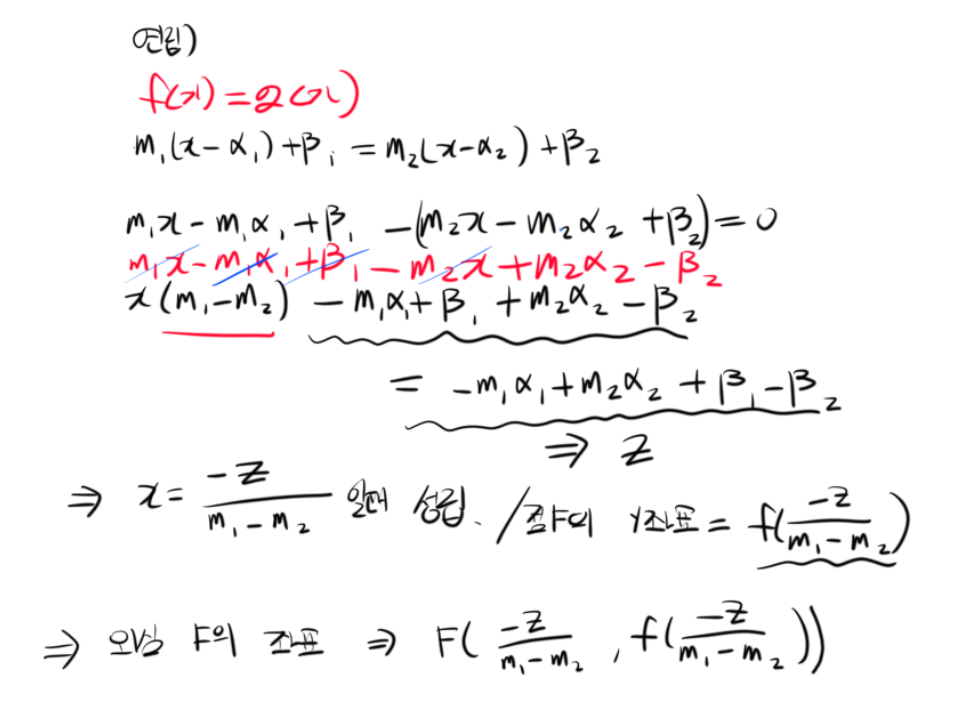 연립)
f(x) = g(x)
m₁(x-α₁)+β₁ = m₂(x-α₂)+β₂
m₁x-m₁α₁+β₁ -(m₂x-m₂α₂+β₂)=0
m₁x-m₁α₁+β₁-m₂x+m₂α₂-β₂
x(m₁-m₂) -m₁α₁+β₁+m₂α₂-β₂
= -m₁α₁+m₂α₂+β₁-β₂
⇒ Z
⇒ x= -Z/(m₁-m₂) 일때 성립. / 점F의 Y좌표 = f(-Z/(m₁-m₂))
⇒ 오심 F의 좌표 ⇒ F( -Z/(m₁-m₂) , f(-Z/(m₁-m₂)))